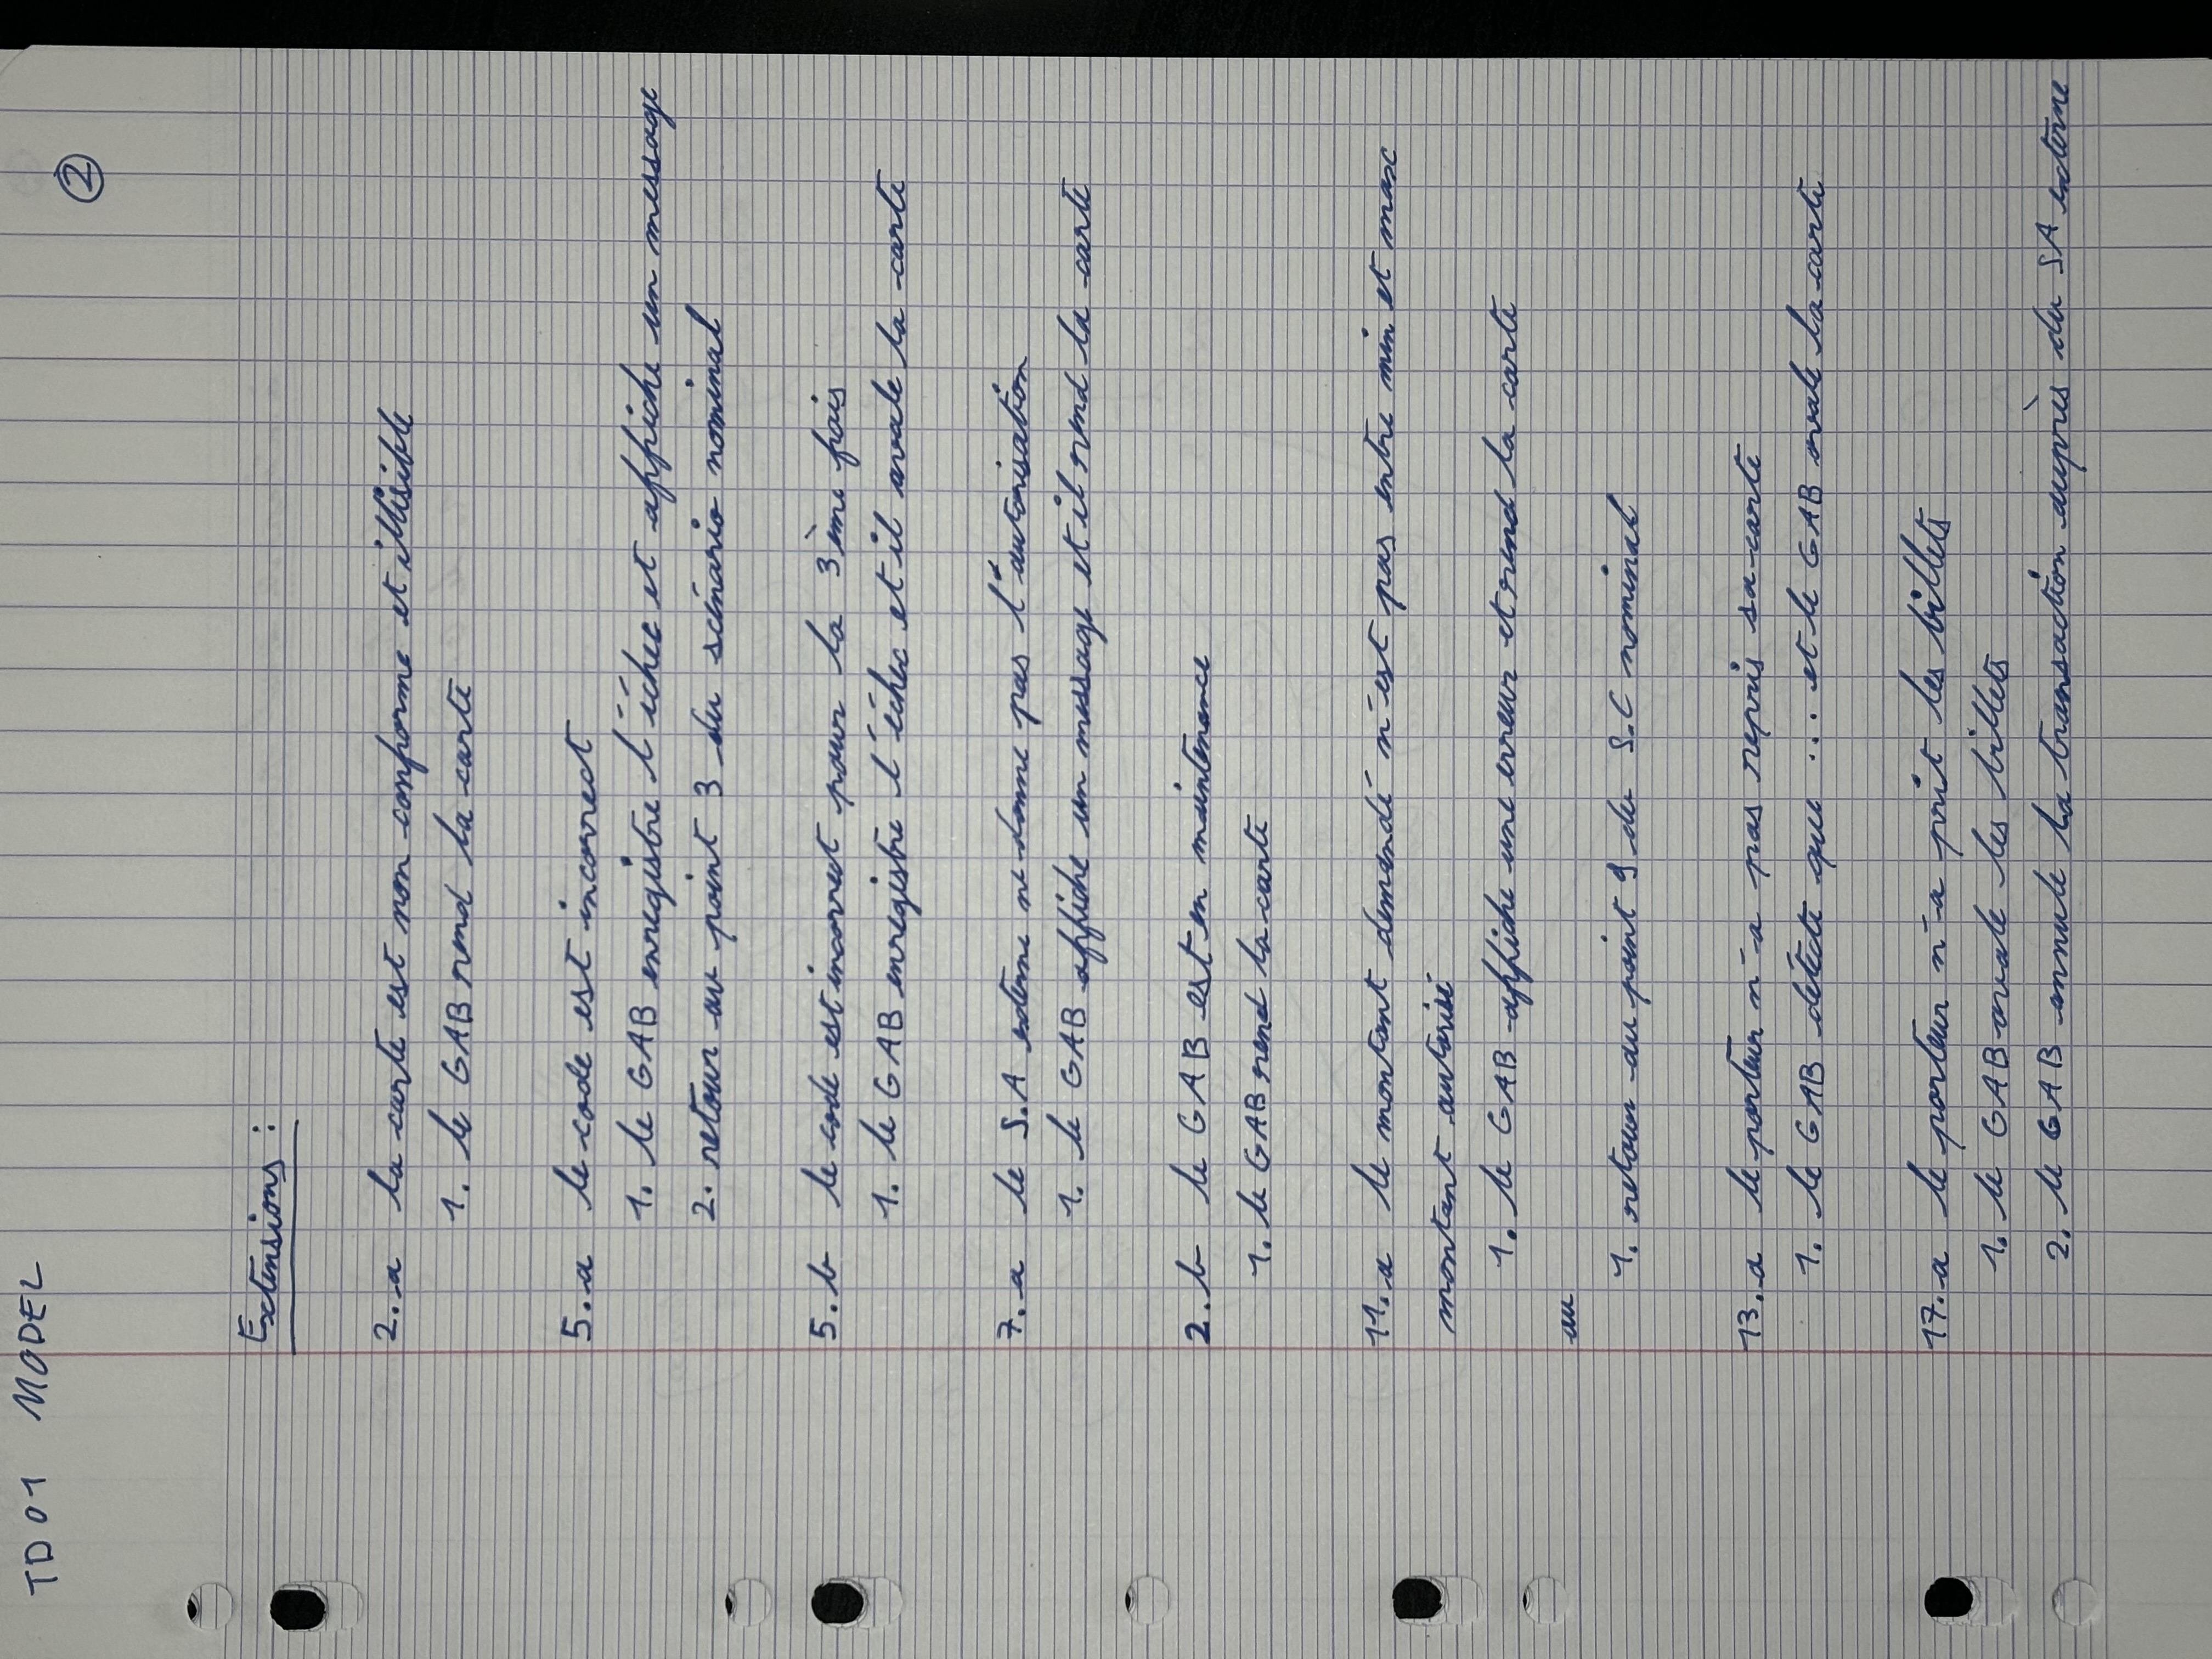 TD01 MODEL
2
Extensions :
2.a la carte est non conforme et illisible
1. le GAB rend la carte
5.a le code est incorrect
1. le GAB enregistre l'échec et affiche un message
2. retour au point 3 du scénario nominal
5.b le code est incorrect pour la 3ème fois
1. le GAB enregistre l'échec et il avale la carte
7.a le S.A externe ne donne pas l'autorisation
1. le GAB affiche un message et il rend la carte
2.b le GAB est en maintenance
1. le GAB rend la carte
11.a le montant demandé n'est pas entre min et max
montant autorisé
1. le GAB affiche une erreur et rend la carte
ou
1. retour au point 9 du S.C nominal
13.a le porteur n'a pas repris sa carte
1. le GAB détecte que ... et le GAB avale la carte
17.a le porteur n'a prit les billets
1. le GAB avale les billets
2. le GAB annule la transaction auprès du SA externe